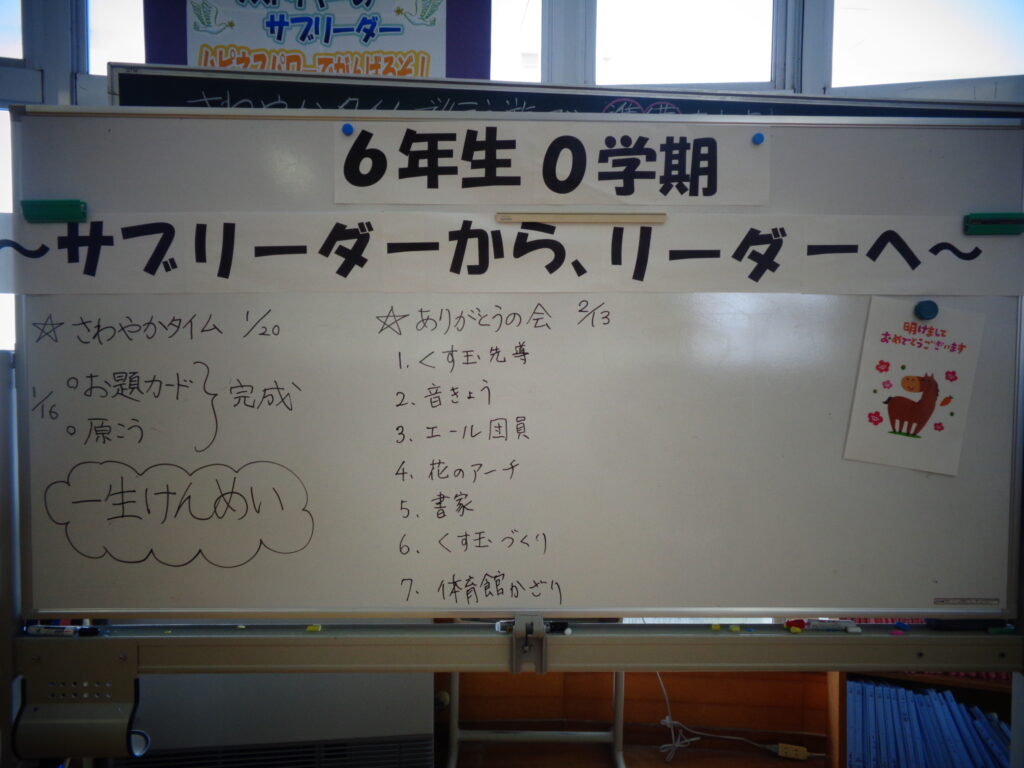 サブリーダー
ハピネスパワーでがんばるぞ!
さわやかタイム
6年生0学期
~サブリーダーから、リーダーへ~
☆さわやかタイム 1/20
1/16
○お題カード
○原こう
完成
一生けんめい
☆ありがとうの会 2/13
1. くす玉先導
2. 音きょう
3. エール団員
4. 花のアーチ
5. 書家
6. くす玉づくり
7. 体育館かざり
明けまして
おめでとうございます